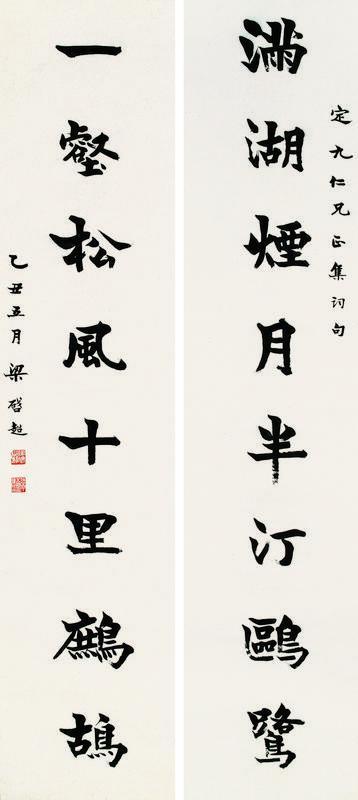 定九仁兄正集詞句
滿湖煙月半汀鷗鷺
一壑松風十里鷓鴣
乙丑五月梁啓超